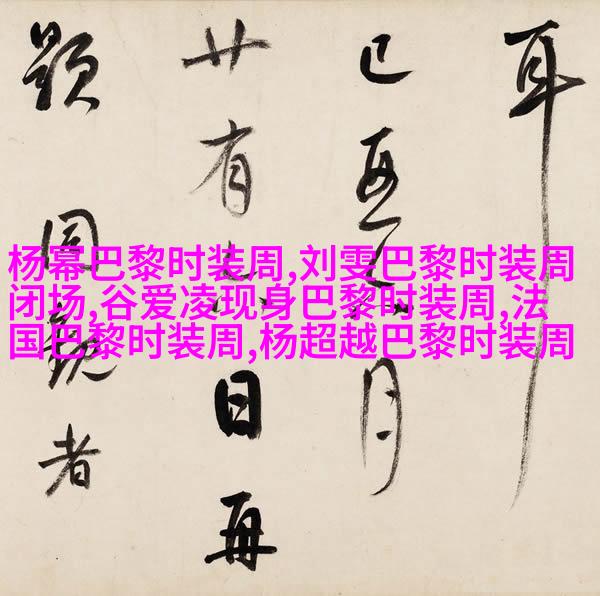 杨幕巴黎时装周,刘雯巴黎时装周
闭场,谷爱凌现身巴黎时装周,法
国巴黎时装周,杨超越巴黎时装周
耳
已亥月
廿有日再
題同觀者